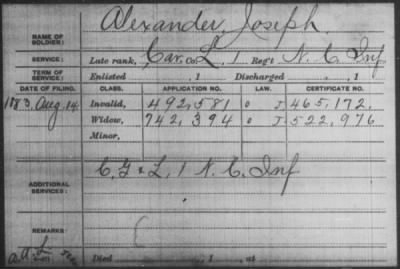 Alexander, Joseph.
NAME OF SOLDIER:
SERVICE: Late rank, Co. L, 1 Reg't N. C. Inf
TERM OF SERVICE: Enlisted , 1 Discharged , 1
DATE OF FILING. CLASS. APPLICATION NO. LAW. CERTIFICATE NO.
1883, Aug. 14 Invalid, 492,581 465,172.
Widow, 742,394 522,976
Minor,
C, G & L, 1 N. C. Inf
ADDITIONAL SERVICES:
REMARKS:
Died , 1 , at